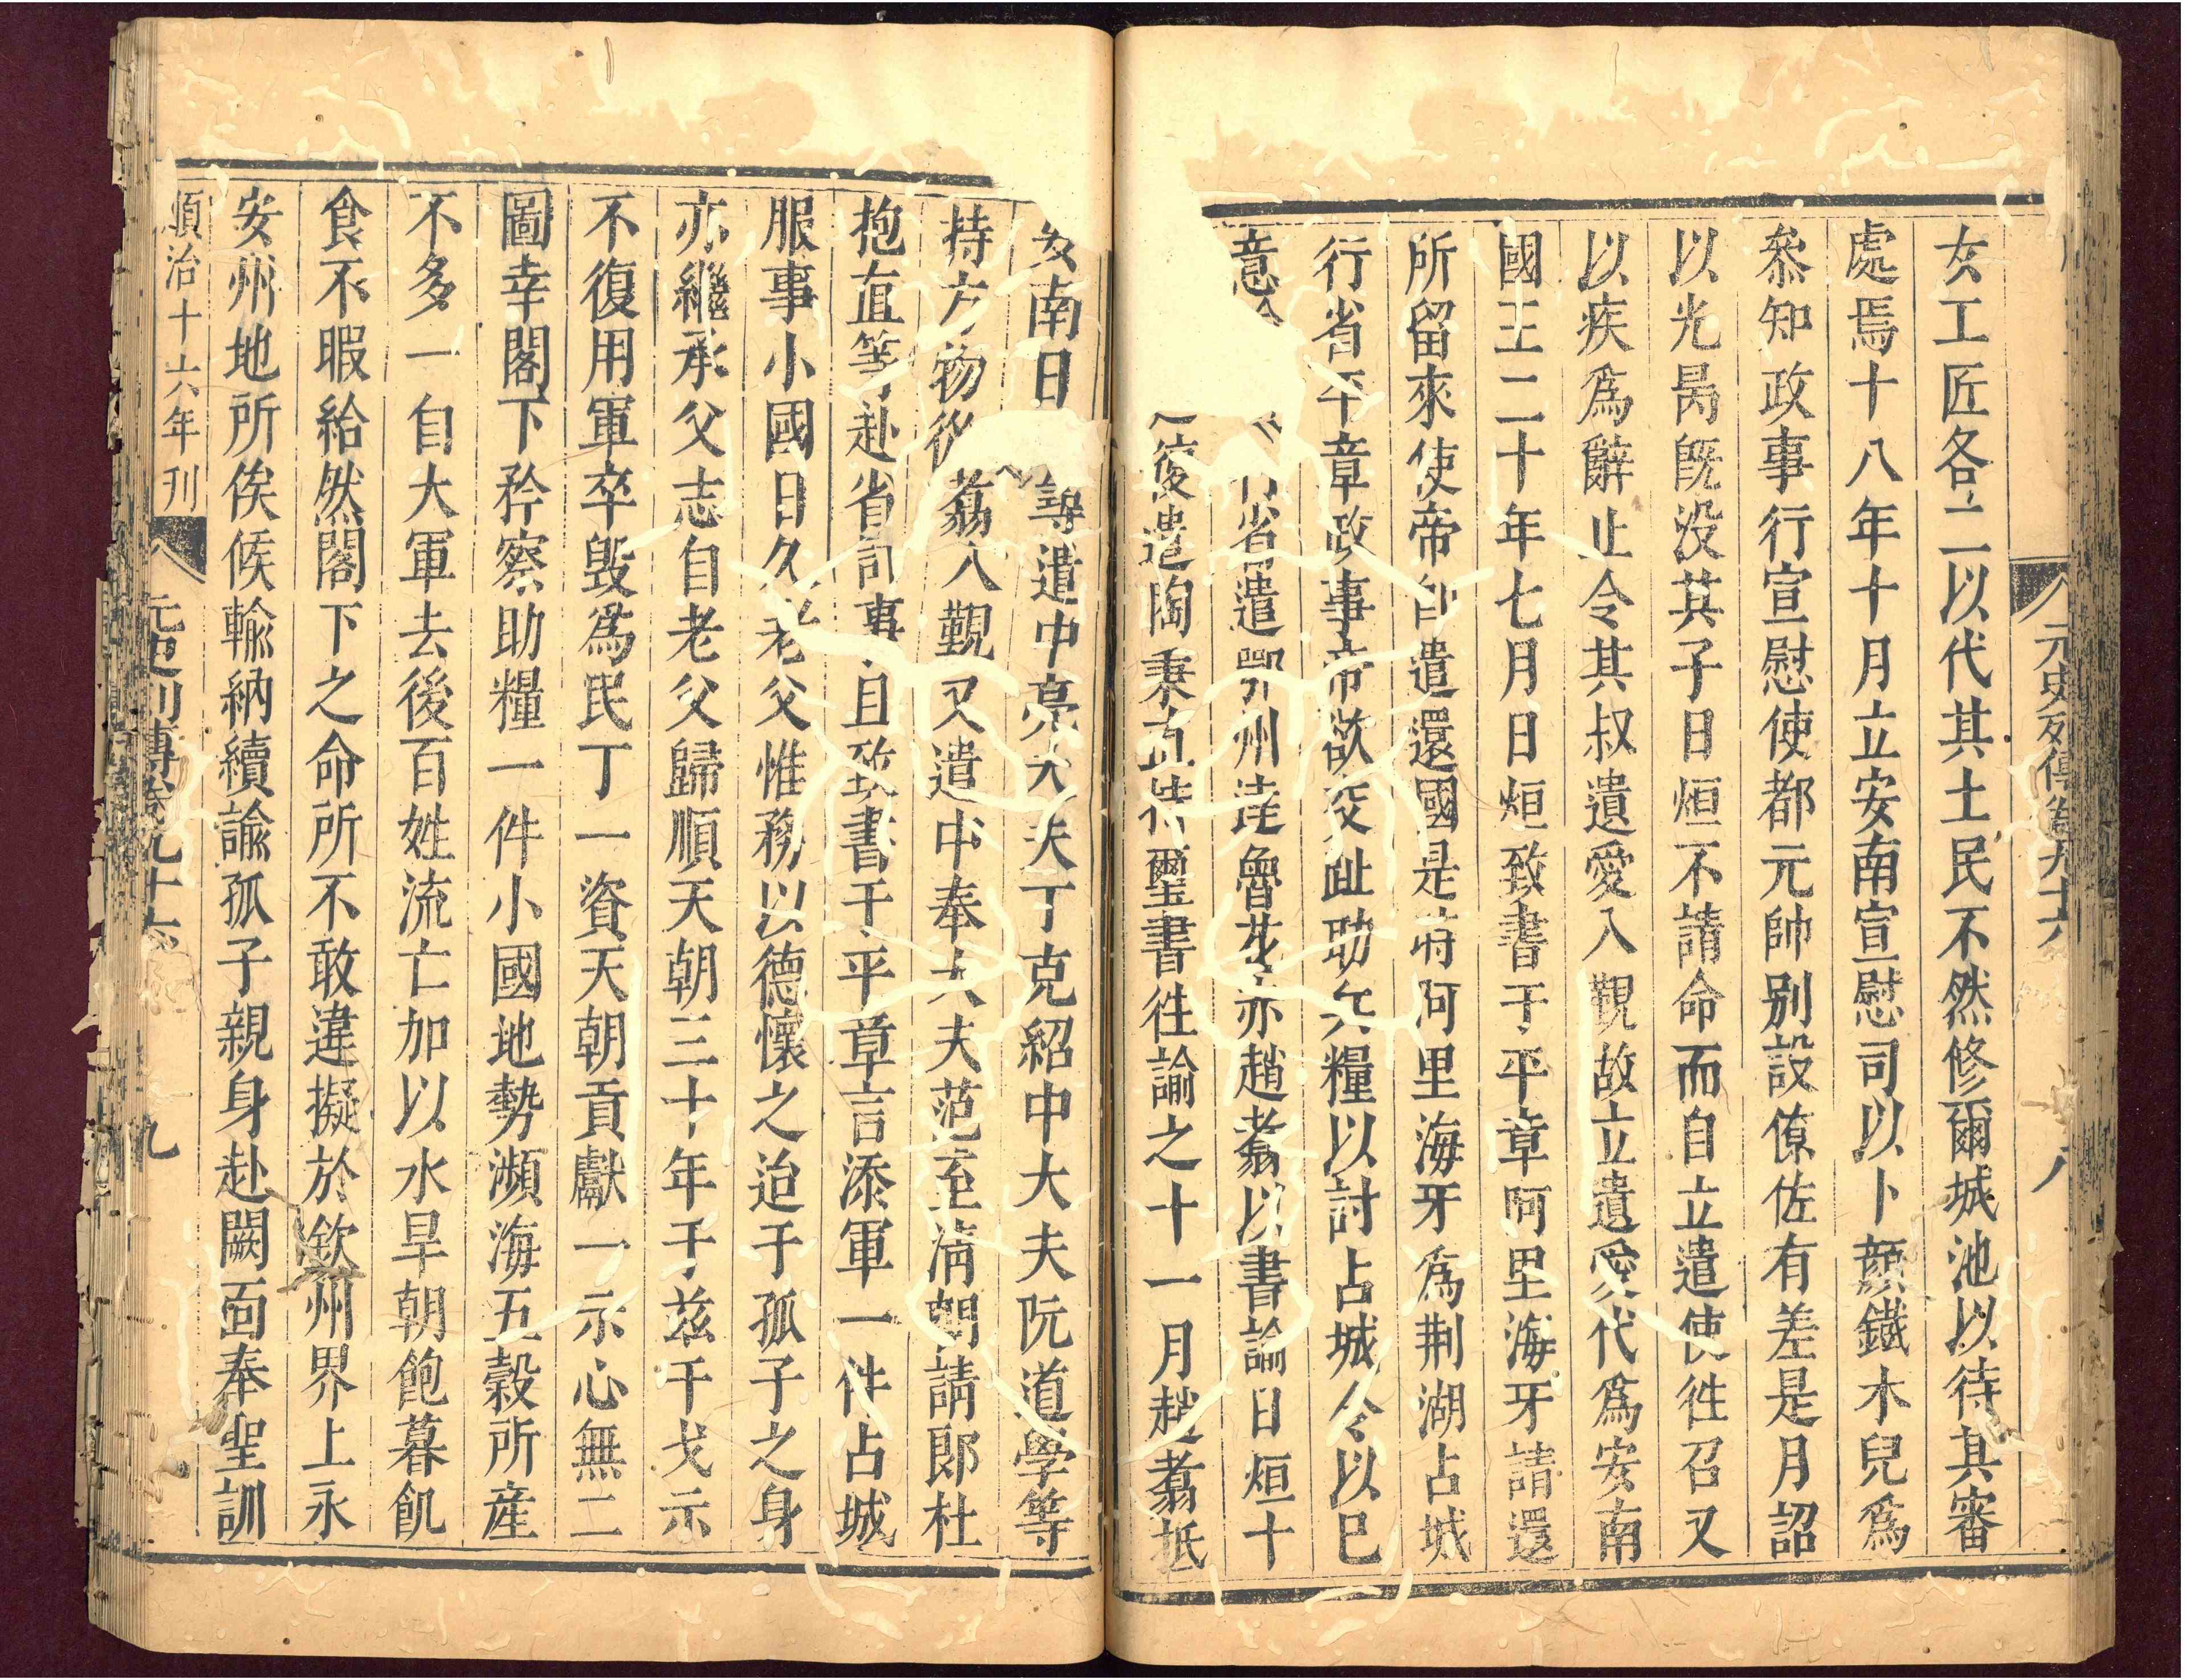 元史列傳卷九十六 八
女工匠各二以代其土民不然修爾城池以待其審
處焉十八年十月立安南宣慰司以卜顏鐵木兒爲
叅知政事行宣慰使都元帥别設僚佐有差是月詔
以光昺旣没其子日烜不請命而自立遣使徃召又
以疾爲辭止令其叔遺愛入覲故立遺愛代爲安南
國王二十年七月日烜致書于平章阿里海牙請還
所留來使帝卽遣還國是時阿里海牙爲荆湖占城
行省平章政事帝欲交趾助兵糧以討占城令以已
意 省遣鄂州達魯花赤趙翥以書諭日烜十
後遣陶秉直持璽書徃諭之十一月趙翥抵
安南日 尋遣中亮大夫丁克紹中大夫阮道學等
持方物從 翥入覲又遣中奉大夫范至淸朝請郎杜
抱直等赴省計事且致書于平章言添軍一件占城
服事小國日久老父惟務以德懷之迨于孤子之身
亦繼承父志自老父歸順天朝三十年于兹干戈示
不復用軍卒毁爲民丁一資天朝貢獻一示心無二
圖幸閣下矜察助糧一件小國地勢瀕海五穀所産
不多一自大軍去後百姓流亡加以水旱朝飽暮飢
食不暇給然閣下之命所不敢違擬於欽州界上永
安州地所俟候輸納續諭孤子親身赴闕面奉聖訓
順治十六年刊 元史列傳卷九十六 九